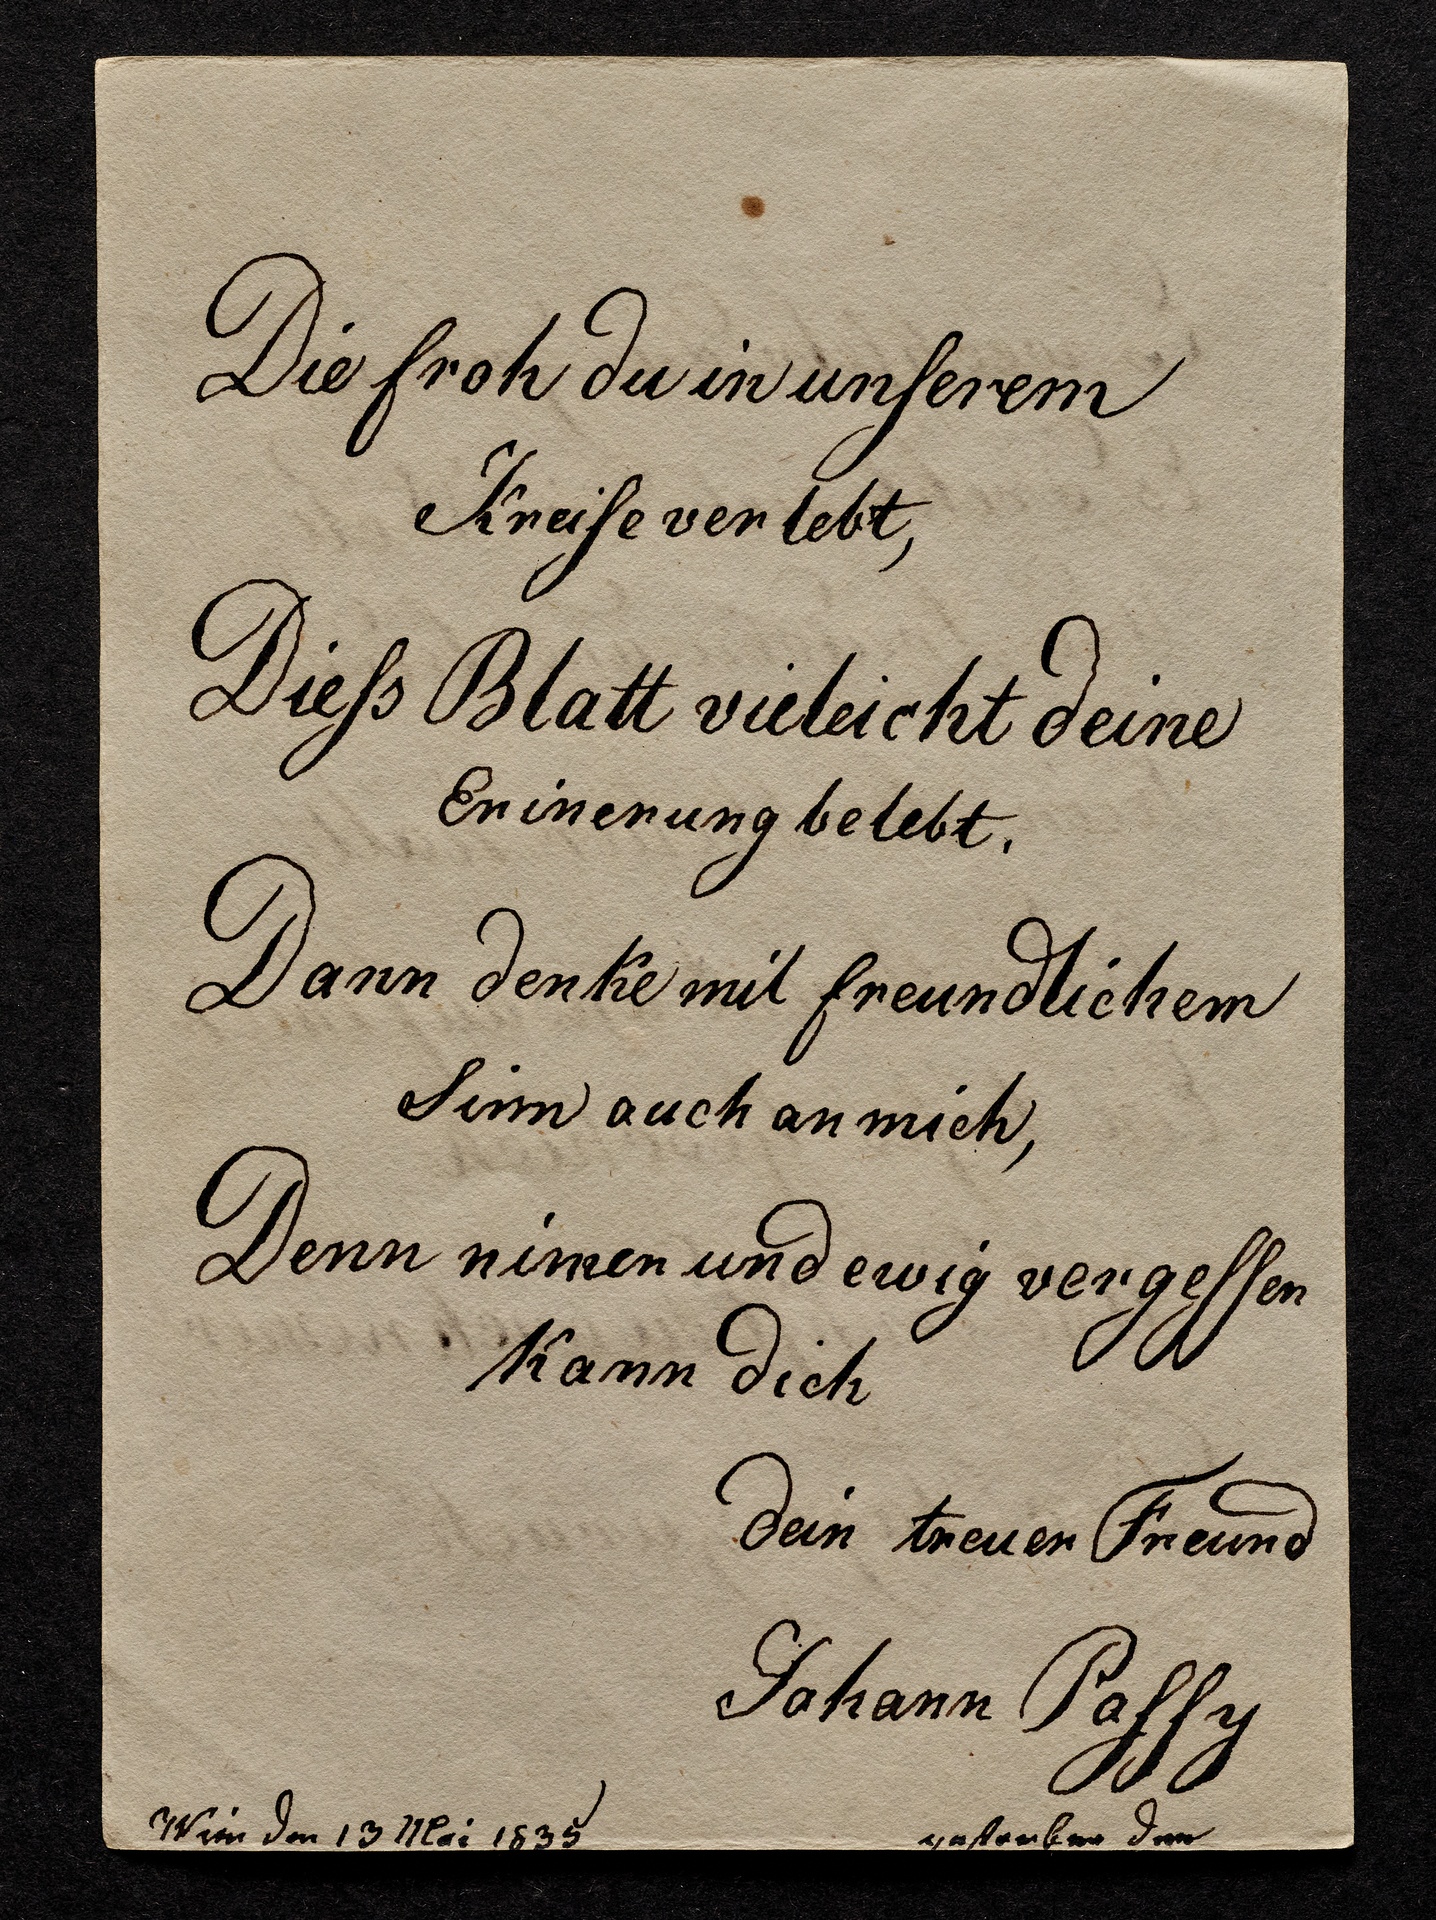 Die froh du in unserem
Kreise verlebt,
Diess Blatt vieleicht deine
Erinerung belebt.
Dann denke mit freundlichem
Sinn auch an mich,
Denn nimer und ewig vergessen
Kann dich
dein treuer Freund
Johann Passy
Wien den 13 Mai 1835
gestorben den